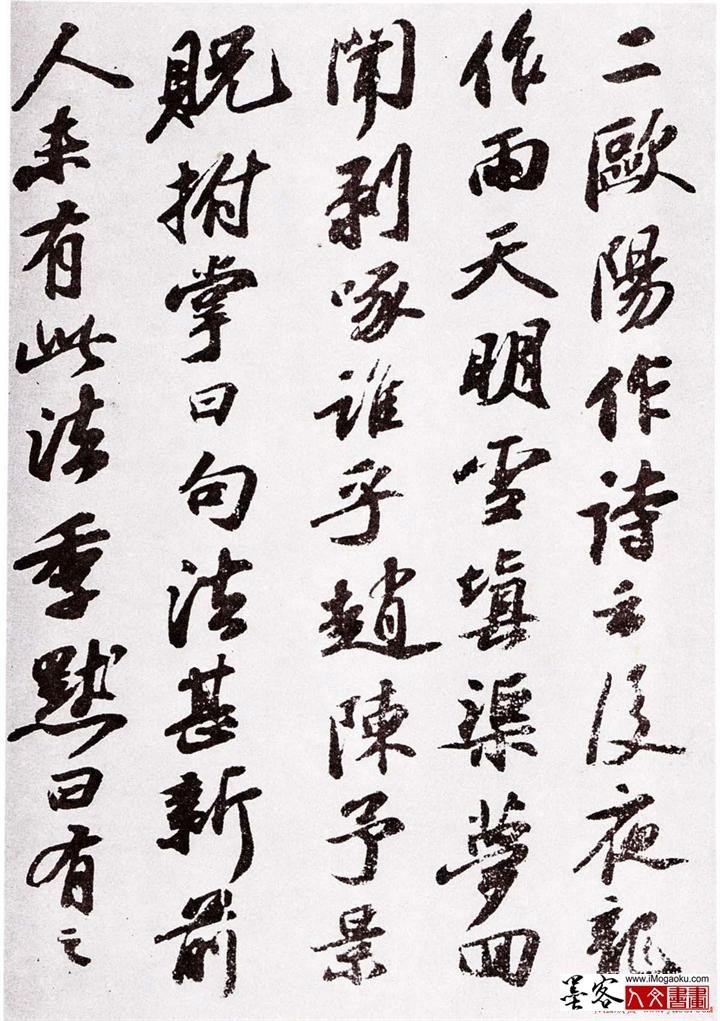 二歐陽作詩云後夜龍
作雨天明雪填渠夢回
聞剥啄誰乎趙陳予景
貺拊掌曰句法甚新前
人未有此法季默曰有之
www.iMogaoku.com
墨客
人文書畫